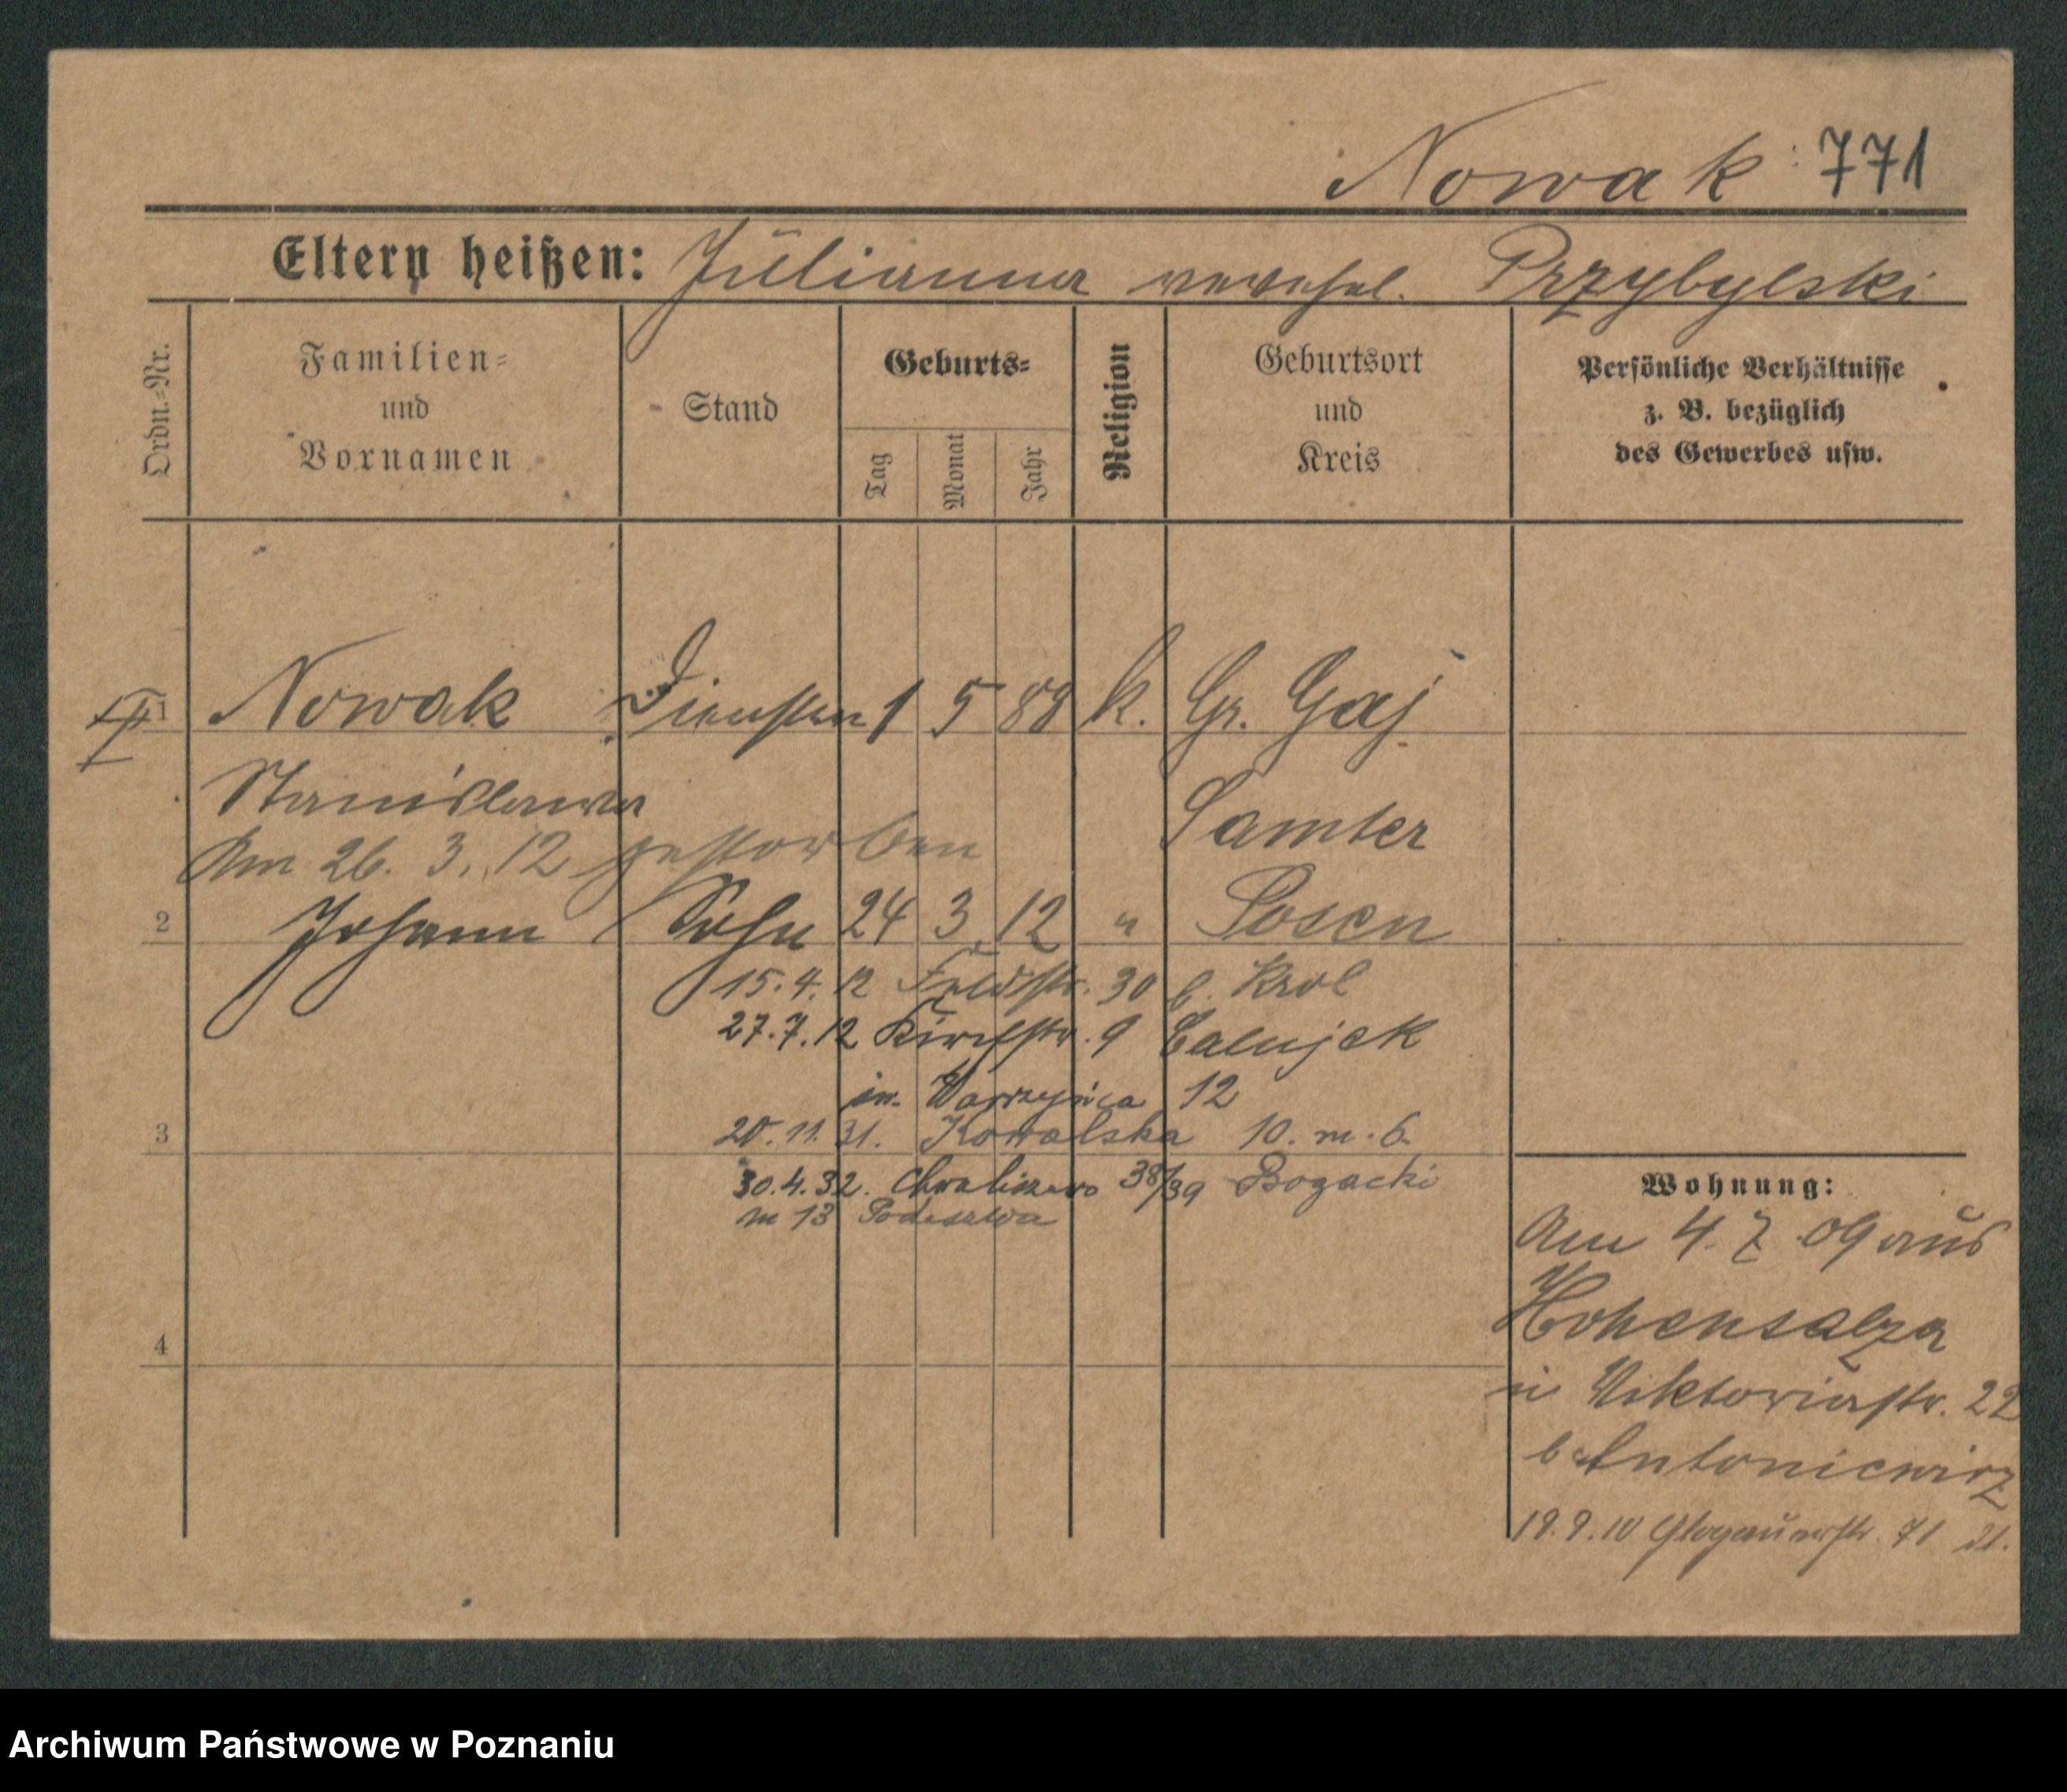 Nowak 771
Eltern heißen: Julianna verehel. Przybylski
Ordn.-Nr.
Familien-
und
Vornamen
Stand
Geburts-
Tag
Monat
Jahr
Religion
Geburtsort
und
Kreis
Persönliche Verhältnisse
z. B. bezüglich
des Gewerbes usw.
1 Nowak 1 5 88 k. Gr. Gaj
Stanislawa Samter
Am 26. 3. 12 gestorben
2 Johann Sohn 24 3. 12 " Posen
15.4.12 Feldstr. 30 b. Krol
27.7.12 Kirchstr. 9
12
3
20.11.31. Kowalska 10. m. 6.
30.4.32. Chwaliszewo 38/39 Bogacki
m 13
4
Wohnung:
Am 4. 7. 09 aus
Hohensalza
n Viktoriastr. 22
b Antoniewicz
19.9.10 Glogauerstr. 71
Archiwum Państwowe w Poznaniu